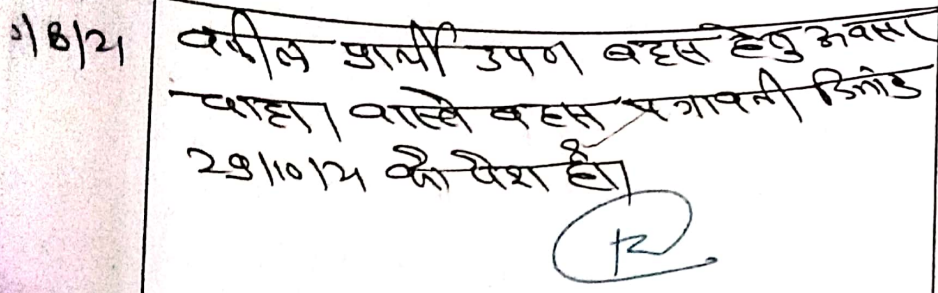 /8/21 वकील प्रार्थी उप० बहस हेतु अवसर
चाहा। वास्ते बहस पत्रावली दिनांक
29/10/21 को पेश हो।